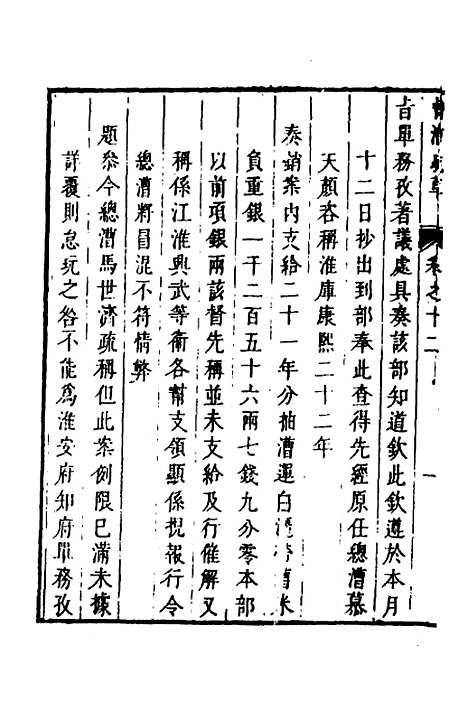 卷之十二
一
旨單務孜著議處具奏該部知道欽此欽遵於本月
十二日抄出到部奉此查得先經原任總漕慕
天顏咨稱淮庫康熙二十二年
奏銷案內支給二十一年分抽漕運白
負重銀一千二百五十六兩七錢九分零本部
以前項銀兩該督先稱並未支給及行催解又
稱係江淮興武等衛各幫支領顯係捏報行令
總漕將冒混不符情弊
題參今總漕馬世濟疏稱但此案例限已滿未據
詳覆則怠玩之咎不能爲淮安府知府單務孜